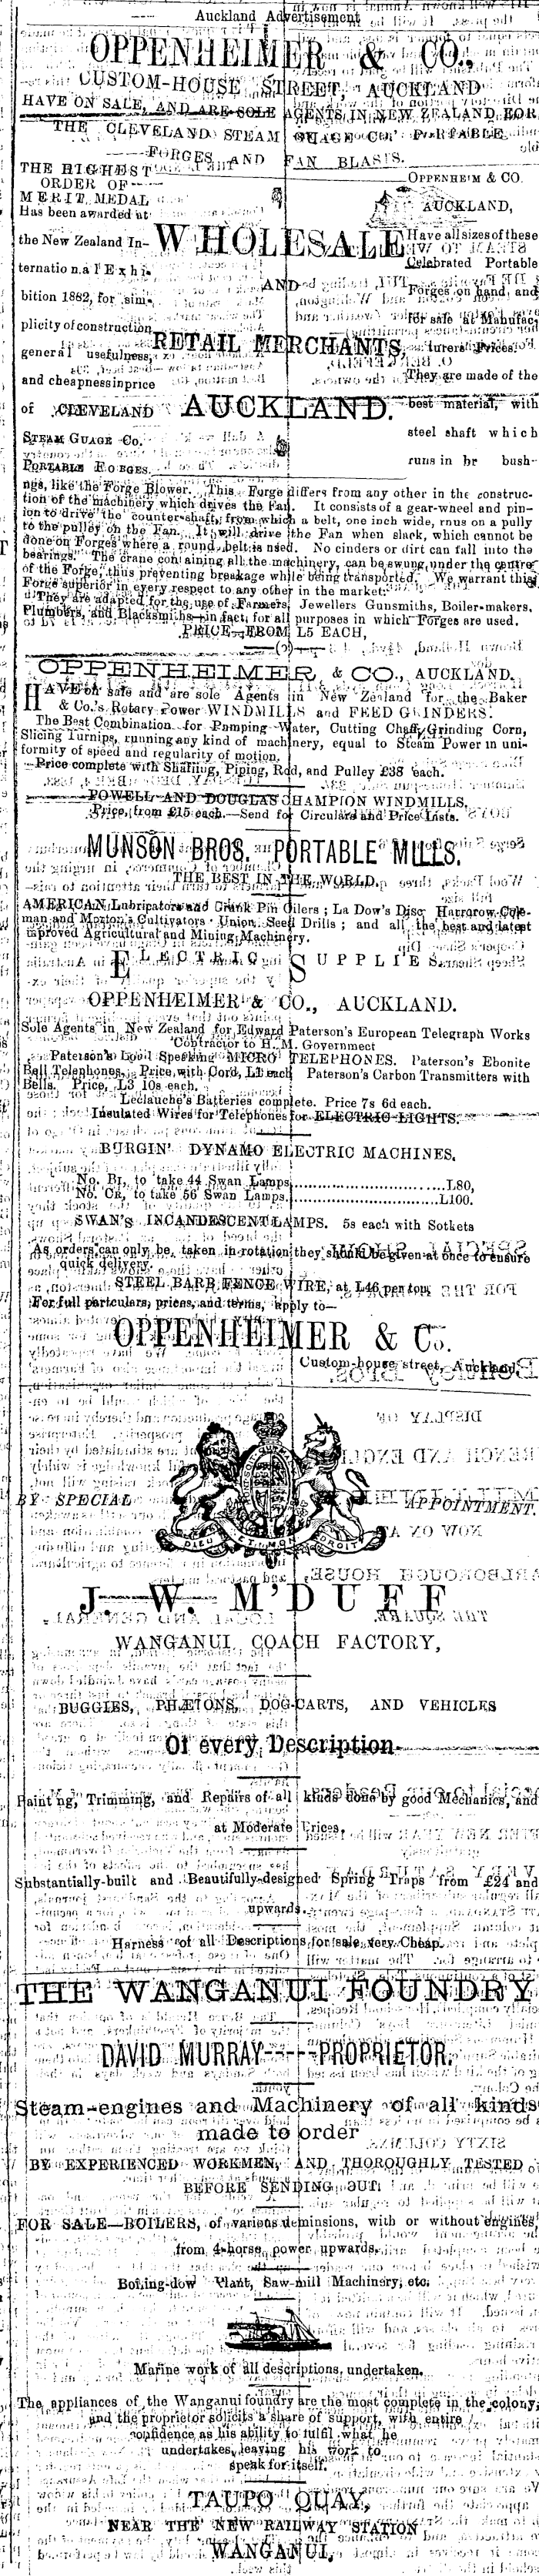 Auckland Advertisement
OPPENHEIMER & CO.,
CUSTOM-HOUSE STREET, AUCKLAND
HAVE ON SALE, AND ARE SOLE AGENTS IN NEW ZEALAND FOR
THE CLEVELAND STEAM GUAGE CO., PORTABLE
FORGES AND FAN BLASTS.
THE HIGHEST
ORDER OF
MERIT MEDAL
Has been awarded at
the New Zealand In-
ternational Exhi-
bition 1882, for sim-
plicity of construction
general usefulness,
and cheapness in price
of CLEVELAND
STEAM GUAGE CO.
PORTABLE FORGES.
WHOLESALE
AND
RETAIL MERCHANTS,
AUCKLAND.
OPPENHEIM & CO.
AUCKLAND,
Have all sizes of these
Celebrated Portable
Forges on hand, and
for sale at Manufac
turers Prices.
They are made of the
best material, with
steel shaft which
runs in br bush-
ngs, like the Forge Blower. This Forge differs from any other in the construc-
tion of the machinery which drives the Fan. It consists of a gear-wheel and pin-
ion to drive the counter-shaft, from which a belt, one inch wide, rnus on a pully
to the pulley on the Fan. It will drive the Fan when slack, which cannot be
done on Forges where a round belt is used. No cinders or dirt can fall into the
bearings. The crane containing all the machinery, can be swung under the centre
of the Forge, thus preventing breakage while being transported. We warrant this
Forge superior in every respect to any other in the market.
They are adapted for the use of Farmers, Jewellers Gunsmiths, Boiler-makers,
Plumbers, and Blacksmiths—in fact, for all purposes in which Forges are used.
PRICE—FROM L5 EACH,
OPPENHEIMER, & CO., AUCKLAND.
HAVE on sale and are sole Agents in New Zealand for the Baker
& Co.'s Rotary Power WINDMILLS and FEED GRINDERS.
The Best Combination for Pumping Water, Cutting Chaff, Grinding Corn,
Slicing Turnips, running any kind of machinery, equal to Steam Power in uni-
formity of speed and regularity of motion.
Price complete with Shafting, Piping, Rod, and Pulley £38 each.
POWELL AND DOUGLAS CHAMPION WINDMILLS,
Price, from £15 each.—Send for Circulars and Price Lists.
MUNSON BROS. PORTABLE MILLS.
THE BEST IN THE WORLD.
AMERICAN Lubricators and Crank Pin Oilers; La Dow's Disc Harrow, Cole-
man and Morton's Cultivators Union Seed Drills; and all the best and latest
improved Agricultural and Mining Machinery.
ELECTRIC SUPPLIES.
OPPENHEIMER & CO., AUCKLAND.
Sole Agents in New Zealand for Edward Paterson's European Telegraph Works
Contractor to H. M. Government
Paterson's Loud Speaking MICRO TELEPHONES. Paterson's Ebonite
Bell Telephones. Price, with Cord, L1 each Paterson's Carbon Transmitters with
Bells. Price, L3 10s each.
Leclauche's Batteries complete. Price 7s 6d each.
Insulated Wires for Telephones for ELECTRIC LIGHTS.
BURGIN' DYNAMO ELECTRIC MACHINES.
No. B1, to take 44 Swan Lamps..............................L80,
No. C2, to take 56 Swan Lamps..............................L100.
SWAN'S INCANDESCENT LAMPS. 5s each with Sotkets
As orders can only be taken in rotation they should be given at once to ensure
quick delivery.
STEEL BARB FENCE WIRE, at L46 per ton,
For full particulars, prices, and terms, apply to—
OPPENHEIMER & Co.
Custom-house street, Auckland.
BY SPECIAL APPOINTMENT.
DIEU ET MON DROIT
J. W. M'DUFF
WANGANUI COACH FACTORY,
BUGGIES, PHÆTONS, DOG-CARTS, AND VEHICLES
Of every Description
Painting, Trimming, and Repairs of all kinds done by good Mechanics, and
at Moderate Prices.
Substantially-built and Beautifully-designed Spring Traps from £24 and
upwards.
Harness of all Descriptions for sale very Cheap.
THE WANGANUI FOUNDRY
DAVID MURRAY----PROPRIETOR.
Steam-engines and Machinery of all kinds
made to order
BY EXPERIENCED WORKMEN, AND THOROUGHLY TESTED
BEFORE SENDING OUT!
FOR SALE—BOILERS, of various deminsions, with or without engines,
from 4-horse power upwards,
Boiling-dow Plant, Saw-mill Machinery, etc.
Marine work of all descriptions, undertaken.
The appliances of the Wanganui foundry are the most complete in the colony,
and the proprietor solicits a share of support, with entire
confidence as his ability to fulfil what he
undertakes, leaving his work to
speak for itself.
TAUPO QUAY,
NEAR THE NEW RAILWAY STATION
WANGANUI.